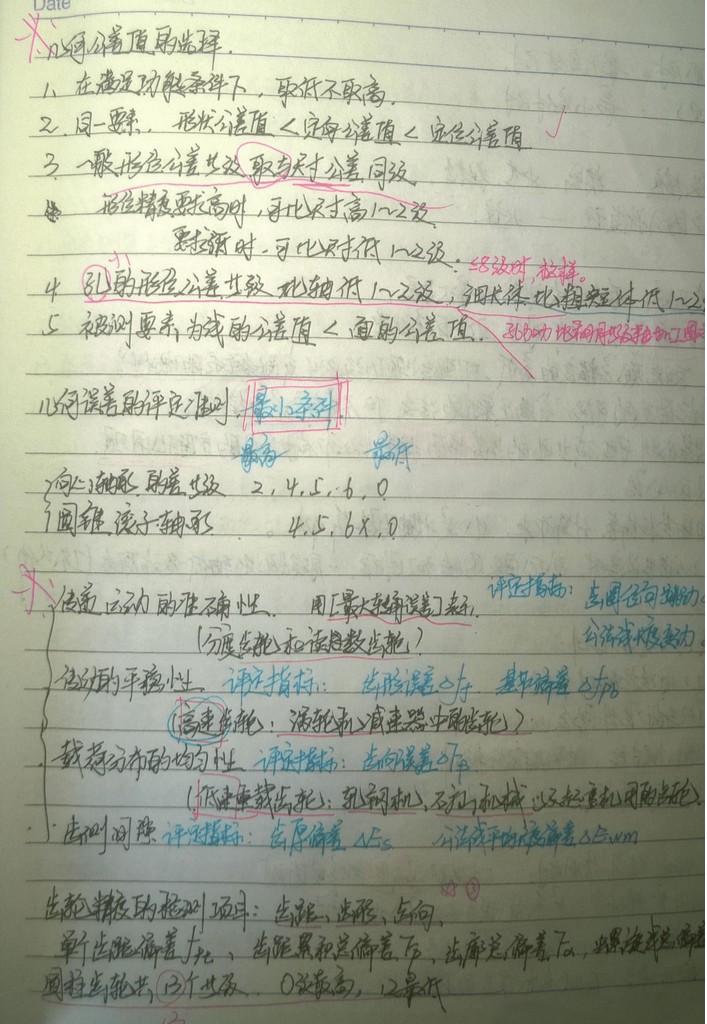 Date
几何公差值的选择.
1、在满足功能条件下，取低不取高.
2、同一要素，形状公差值 < 定向公差值 < 定位公差值
3、一般形位公差等级 取与尺寸公差同级
形位精度要求高时，可比尺寸高1~2级
要求低时，可比尺寸低1~2级.
≤8级时，这样。
4、孔的形位公差等级 比轴低1~2级，细长体比粗短体低1~2
5、被测要素为线的公差值 < 面的公差值.
几何误差的评定准则 最小条件
最高 最低
向心轴承 的等级 2、4、5、6、0
圆锥滚子轴承 4、5、6x、0
传递运动的准确性. 用[最大转角误差]表示. 评定指标：齿圈径向跳动
(分度齿轮和读数齿轮) 公法线长度变动
传动的平稳性 评定指标： 齿形误差△ff 基节偏差△fpb
(高速齿轮：涡轮机减速器中的齿轮)
载荷分布的均匀性 评定指标：齿向误差△Fβ
(低速重载齿轮：轧钢机、矿山机械、起重机用的齿轮.
齿侧间隙 评定指标：齿厚偏差△Es 公法线平均长度偏差△Ewm
齿轮精度的检测项目：齿距、齿形、齿向、
单个齿距偏差fpt、齿距累积总偏差Fp、齿廓总偏差Fα、螺旋线总偏差
圆柱齿轮共 13个等级. 0级最高，12最低
13